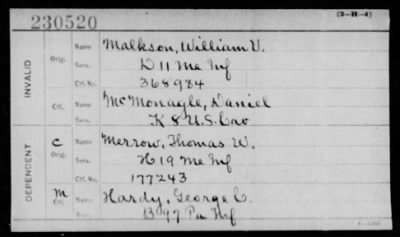 230520
(3-H-4)
INVALID
Orig. Name Malkson, William V.
Serv. D 11 Me Inf
Ctf. No. 368984
Ctf. Name McMonagle, Daniel
Serv. K 8 U.S. Cav
DEPENDENT
C Orig. Name Merrow, Thomas W.
Serv. H 19 Me Inf
Ctf. No. 177243
M Ctf. Name Hardy, George C.
Serv. B 97 Pa Inf